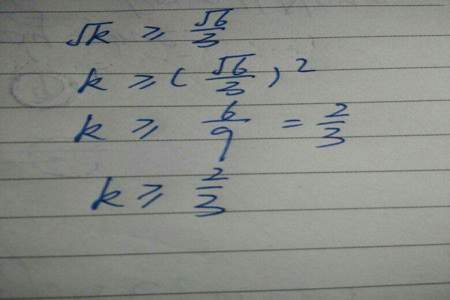 √k ≥ √6/3
k ≥ (√6/3)²
k ≥ 6/9 = 2/3
k ≥ 2/3